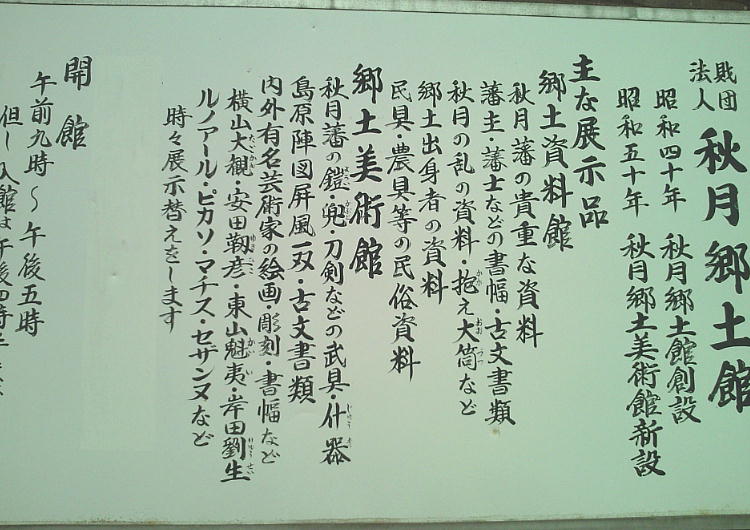 財団法人 秋月郷土館
昭和四十年 秋月郷土館創設
昭和五十年 秋月郷土美術館新設
主な展示品
郷土資料館
秋月藩の貴重な資料
藩主・藩士などの書幅・古文書類
秋月の乱の資料・抱え大筒など
郷土出身者の資料
民具・農具等の民俗資料
郷土美術館
秋月藩の鎧・兜・刀剣などの武具・什器
島原陣図屏風一双・古文書類
内外有名芸術家の絵画・彫刻・書幅など
横山大観・安田靱彦・東山魁夷・岸田劉生
ルノアール・ピカソ・マチス・セザンヌなど
時々展示替えをします
開館
午前九時～午後五時
但し入館は午後四時